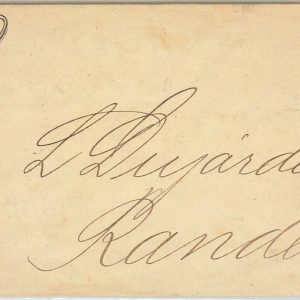 L Dujarde
Rande